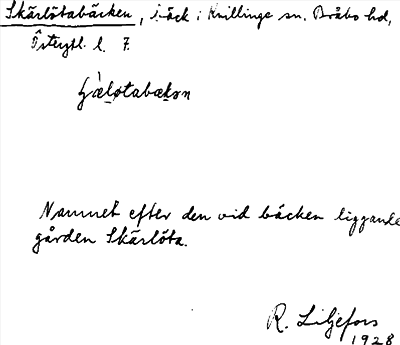 Skärlötabäcken, bäck i Kvillinge sn. Bråbo hd,
Östergtl. l. 7.
Namnet efter den vid bäcken liggande
gården Skärlöta.
R. Liljefors
1928